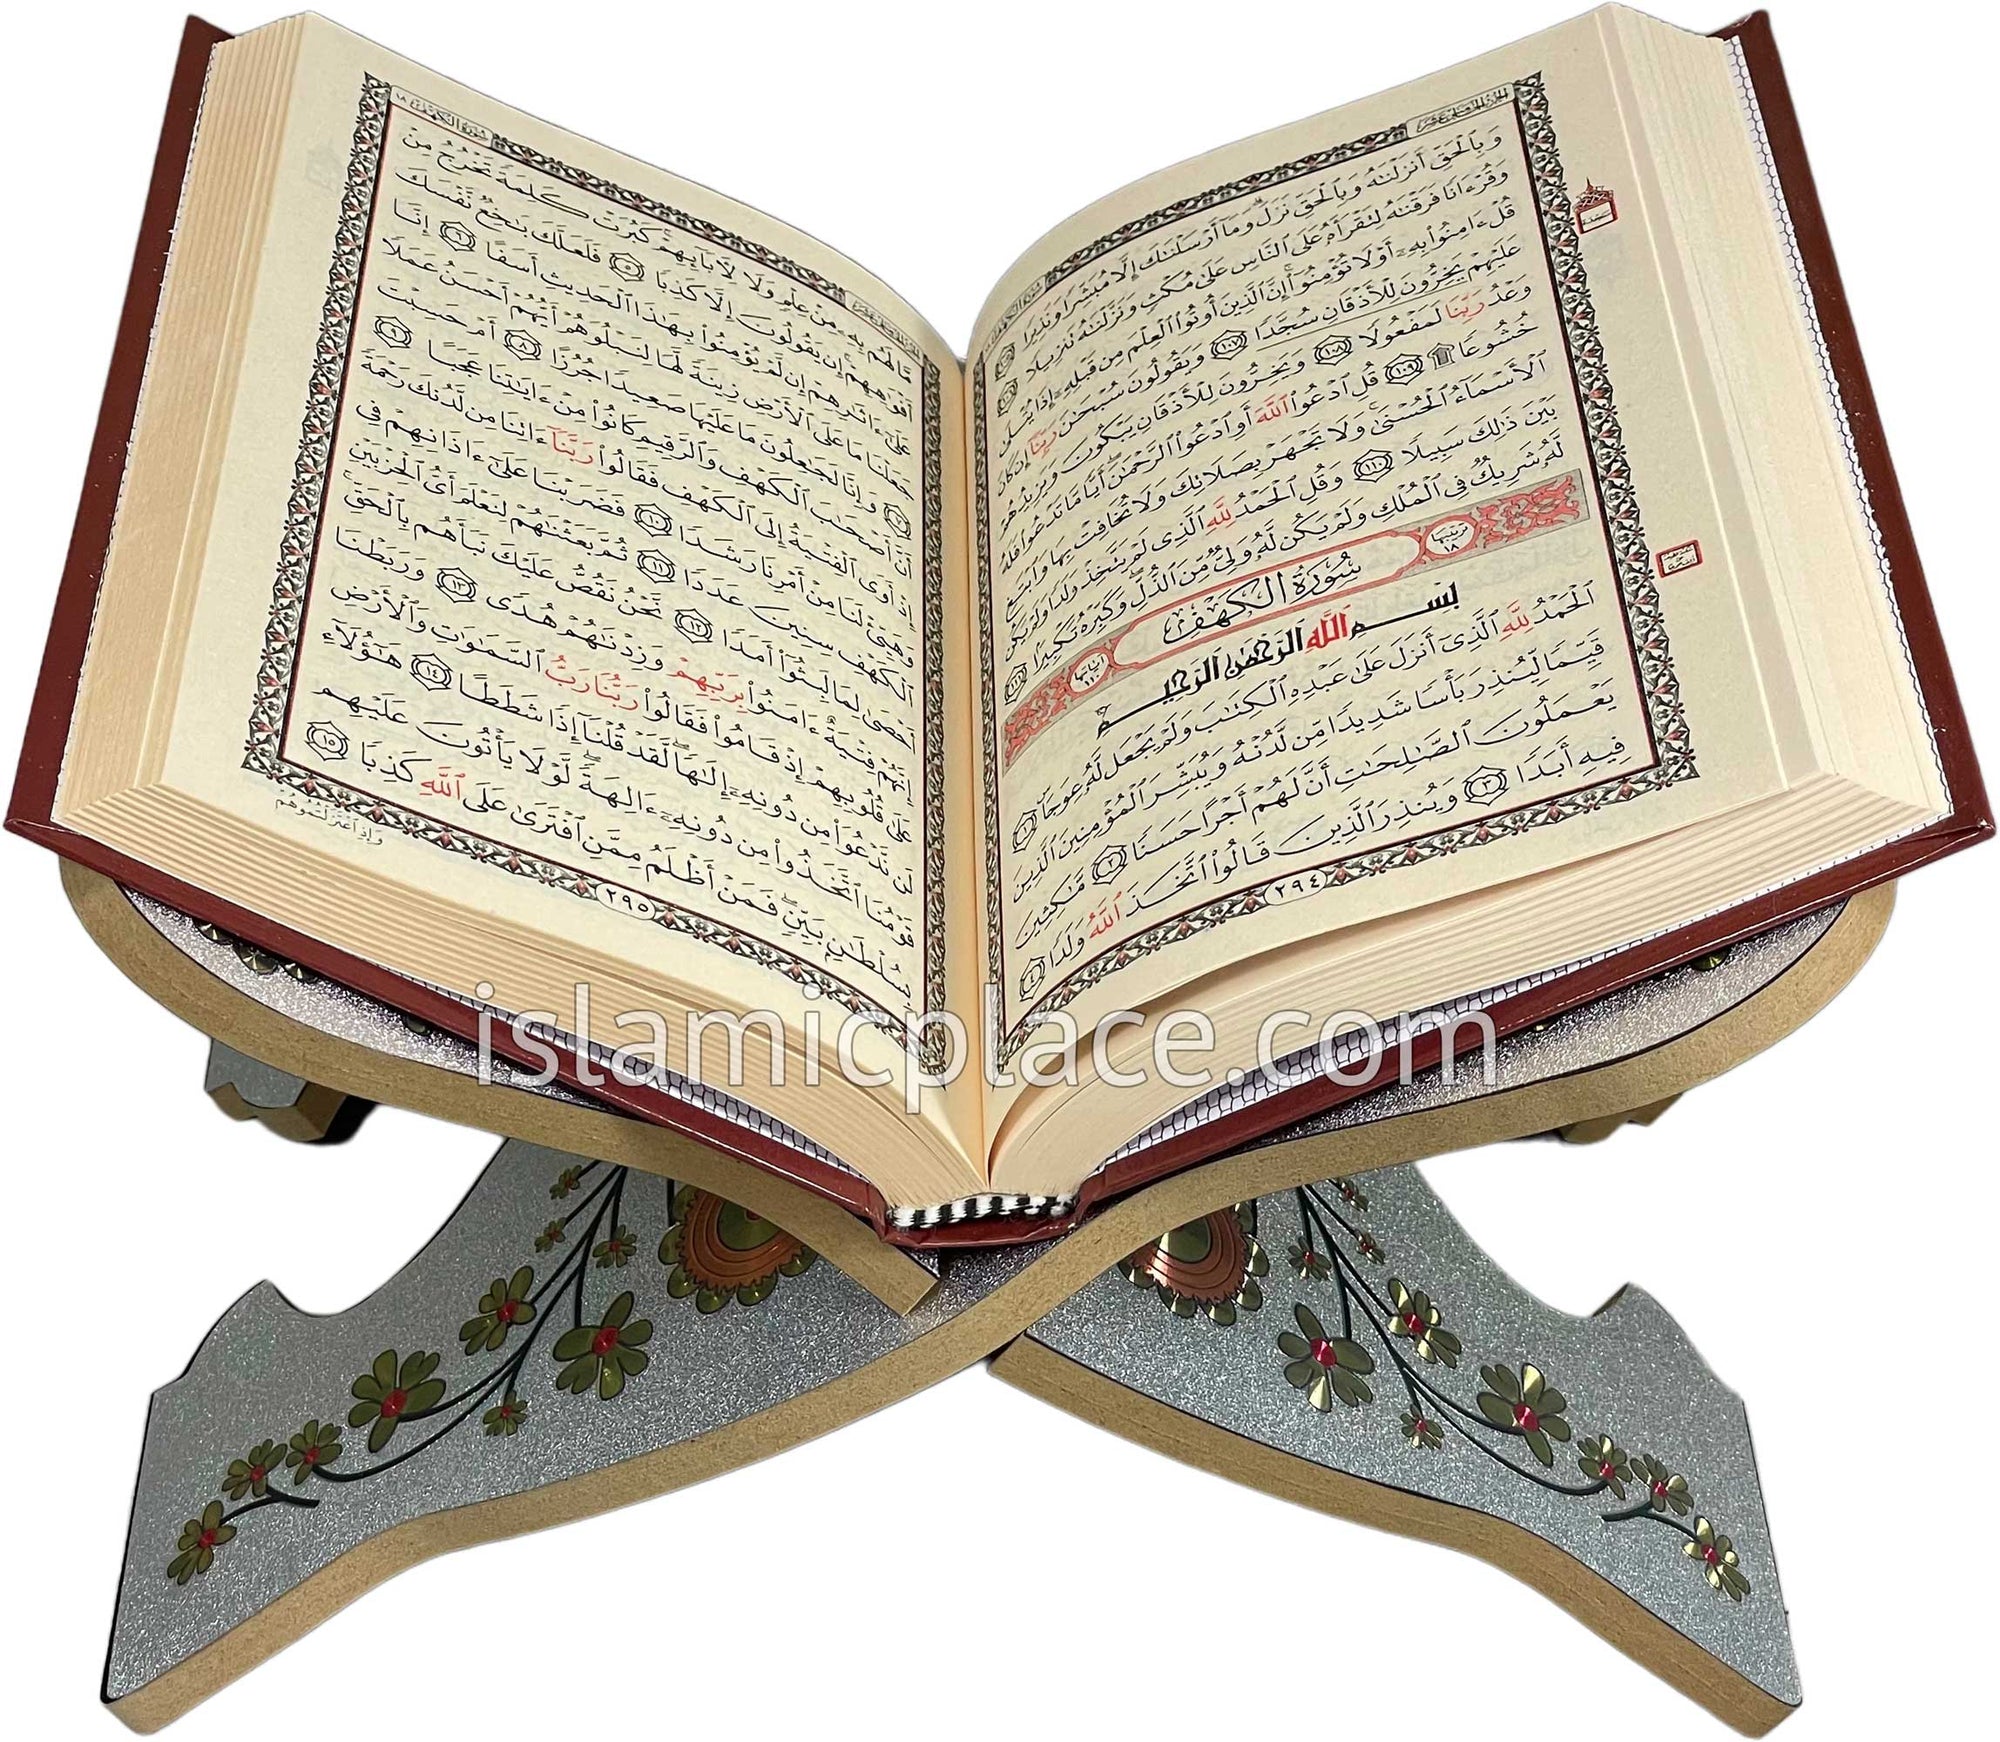 الجزء الخامس عشر
سورة الكهف ١٨
وَبِالْحَقِّ أَنزَلْنَٰهُ وَبِالْحَقِّ نَزَلَ وَمَآ أَرْسَلْنَٰكَ إِلَّا مُبَشِّرًا وَنَذِيرًا ١٠٥
وَقُرْءَانًا فَرَقْنَٰهُ لِتَقْرَأَهُۥ عَلَى ٱلنَّاسِ عَلَىٰ مُكْثٍ وَنَزَّلْنَٰهُ تَنزِيلًا ١٠٦
قُلْ ءَامِنُوا۟ بِهِۦٓ أَوْ لَا تُؤْمِنُوٓا۟ إِنَّ ٱلَّذِينَ أُوتُوا۟ ٱلْعِلْمَ مِن قَبْلِهِۦٓ إِذَا يُتْلَىٰ
عَلَيْهِمْ يَخِرُّونَ لِلْأَذْقَانِ سُجَّدًا ١٠٧ وَيَقُولُونَ سُبْحَٰنَ رَبِّنَآ إِن كَانَ
وَعْدُ رَبِّنَا لَمَفْعُولًا ١٠٨ وَيَخِرُّونَ لِلْأَذْقَانِ يَبْكُونَ وَيَزِيدُهُمْ
خُشُوعًا ۩ ١٠٩ قُلِ ٱدْعُوا۟ ٱللَّهَ أَوِ ٱدْعُوا۟ ٱلرَّحْمَٰنَ أَيًّا مَّا تَدْعُوا۟ فَلَهُ
ٱلْأَسْمَآءُ ٱلْحُسْنَىٰ وَلَا تَجْهَرْ بِصَلَاتِكَ وَلَا تُخَافِتْ بِهَا وَٱبْتَغِ
بَيْنَ ذَٰلِكَ سَبِيلًا ١١٠ وَقُلِ ٱلْحَمْدُ لِلَّهِ ٱلَّذِى لَمْ يَتَّخِذْ وَلَدًا وَلَمْ يَكُن
لَّهُۥ شَرِيكٌ فِى ٱلْمُلْكِ وَلَمْ يَكُن لَّهُۥ وَلِىٌّ مِّنَ ٱلذُّلِّ وَكَبِّرْهُ تَكْبِيرًا ١١١
ترتيبها ١٨ سُورَةُ الكَهْفِ آياتها ١١٠
بِسْمِ ٱللَّهِ ٱلرَّحْمَٰنِ ٱلرَّحِيمِ
ٱلْحَمْدُ لِلَّهِ ٱلَّذِىٓ أَنزَلَ عَلَىٰ عَبْدِهِ ٱلْكِتَٰبَ وَلَمْ يَجْعَل لَّهُۥ عِوَجَا ١
قَيِّمًا لِّيُنذِرَ بَأْسًا شَدِيدًا مِّن لَّدُنْهُ وَيُبَشِّرَ ٱلْمُؤْمِنِينَ ٱلَّذِينَ
يَعْمَلُونَ ٱلصَّٰلِحَٰتِ أَنَّ لَهُمْ أَجْرًا حَسَنًا ٢ مَّٰكِثِينَ
فِيهِ أَبَدًا ٣ وَيُنذِرَ ٱلَّذِينَ قَالُوا۟ ٱتَّخَذَ ٱللَّهُ وَلَدًا ٤
٢٩٤
سورة الكهف ١٨
مَّا لَهُم بِهِۦ مِنْ عِلْمٍ وَلَا لِأٓبَآئِهِمْ كَبُرَتْ كَلِمَةً تَخْرُجُ مِنْ
أَفْوَٰهِهِمْ إِن يَقُولُونَ إِلَّا كَذِبًا ٥ فَلَعَلَّكَ بَٰخِعٌ نَّفْسَكَ
عَلَىٰٓ ءَاثَٰرِهِمْ إِن لَّمْ يُؤْمِنُوا۟ بِهَٰذَا ٱلْحَدِيثِ أَسَفًا ٦ إِنَّا
جَعَلْنَا مَا عَلَى ٱلْأَرْضِ زِينَةً لَّهَا لِنَبْلُوَهُمْ أَيُّهُمْ أَحْسَنُ عَمَلًا
٧ وَإِنَّا لَجَٰعِلُونَ مَا عَلَيْهَا صَعِيدًا جُرُزًا ٨ أَمْ حَسِبْتَ
أَنَّ أَصْحَٰبَ ٱلْكَهْفِ وَٱلرَّقِيمِ كَانُوا۟ مِنْ ءَايَٰتِنَا عَجَبًا ٩
إِذْ أَوَى ٱلْفِتْيَةُ إِلَى ٱلْكَهْفِ فَقَالُوا۟ رَبَّنَآ ءَاتِنَا مِن لَّدُنكَ رَحْمَةً
وَهَيِّئْ لَنَا مِنْ أَمْرِنَا رَشَدًا ١٠ فَضَرَبْنَا عَلَىٰٓ ءَاذَانِهِمْ فِى
ٱلْكَهْفِ سِنِينَ عَدَدًا ١١ ثُمَّ بَعَثْنَٰهُمْ لِنَعْلَمَ أَىُّ ٱلْحِزْبَيْنِ
أَحْصَىٰ لِمَا لَبِثُوٓا۟ أَمَدًا ١٢ نَّحْنُ نَقُصُّ عَلَيْكَ نَبَأَهُم بِٱلْحَقِّ
إِنَّهُمْ فِتْيَةٌ ءَامَنُوا۟ بِرَبِّهِمْ وَزِدْنَٰهُمْ هُدًى ١٣ وَرَبَطْنَا
عَلَىٰ قُلُوبِهِمْ إِذْ قَامُوا۟ فَقَالُوا۟ رَبُّنَا رَبُّ ٱلسَّمَٰوَٰتِ وَٱلْأَرْضِ
لَن نَّدْعُوَا۟ مِن دُونِهِۦٓ إِلَٰهًا لَّقَدْ قُلْنَآ إِذًا شَطَطًا ١٤ هَٰٓؤُلَآءِ
قَوْمُنَا ٱتَّخَذُوا۟ مِن دُونِهِۦٓ ءَالِهَةً لَّوْلَا يَأْتُونَ عَلَيْهِم
بِسُلْطَٰنٍۭ بَيِّنٍ فَمَنْ أَظْلَمُ مِمَّنِ ٱفْتَرَىٰ عَلَى ٱللَّهِ كَذِبًا ١٥
وَإِذِ ٱعْتَزَلْتُمُوهُمْ
٢٩٥
islamicplace.com